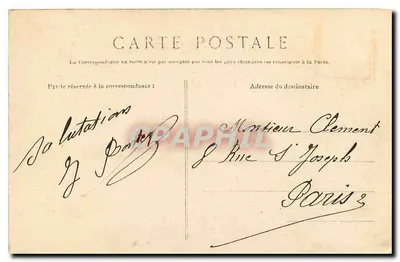 CARTE POSTALE
La Correspondance au recto n'est pas acceptée par tous les pays étrangers (se renseigner à la Poste).
Partie réservée à la correspondance :
Adresse du destinataire
Salutations
J
Monsieur Clement
8 Rue St Joseph
Paris
CPAPHIL